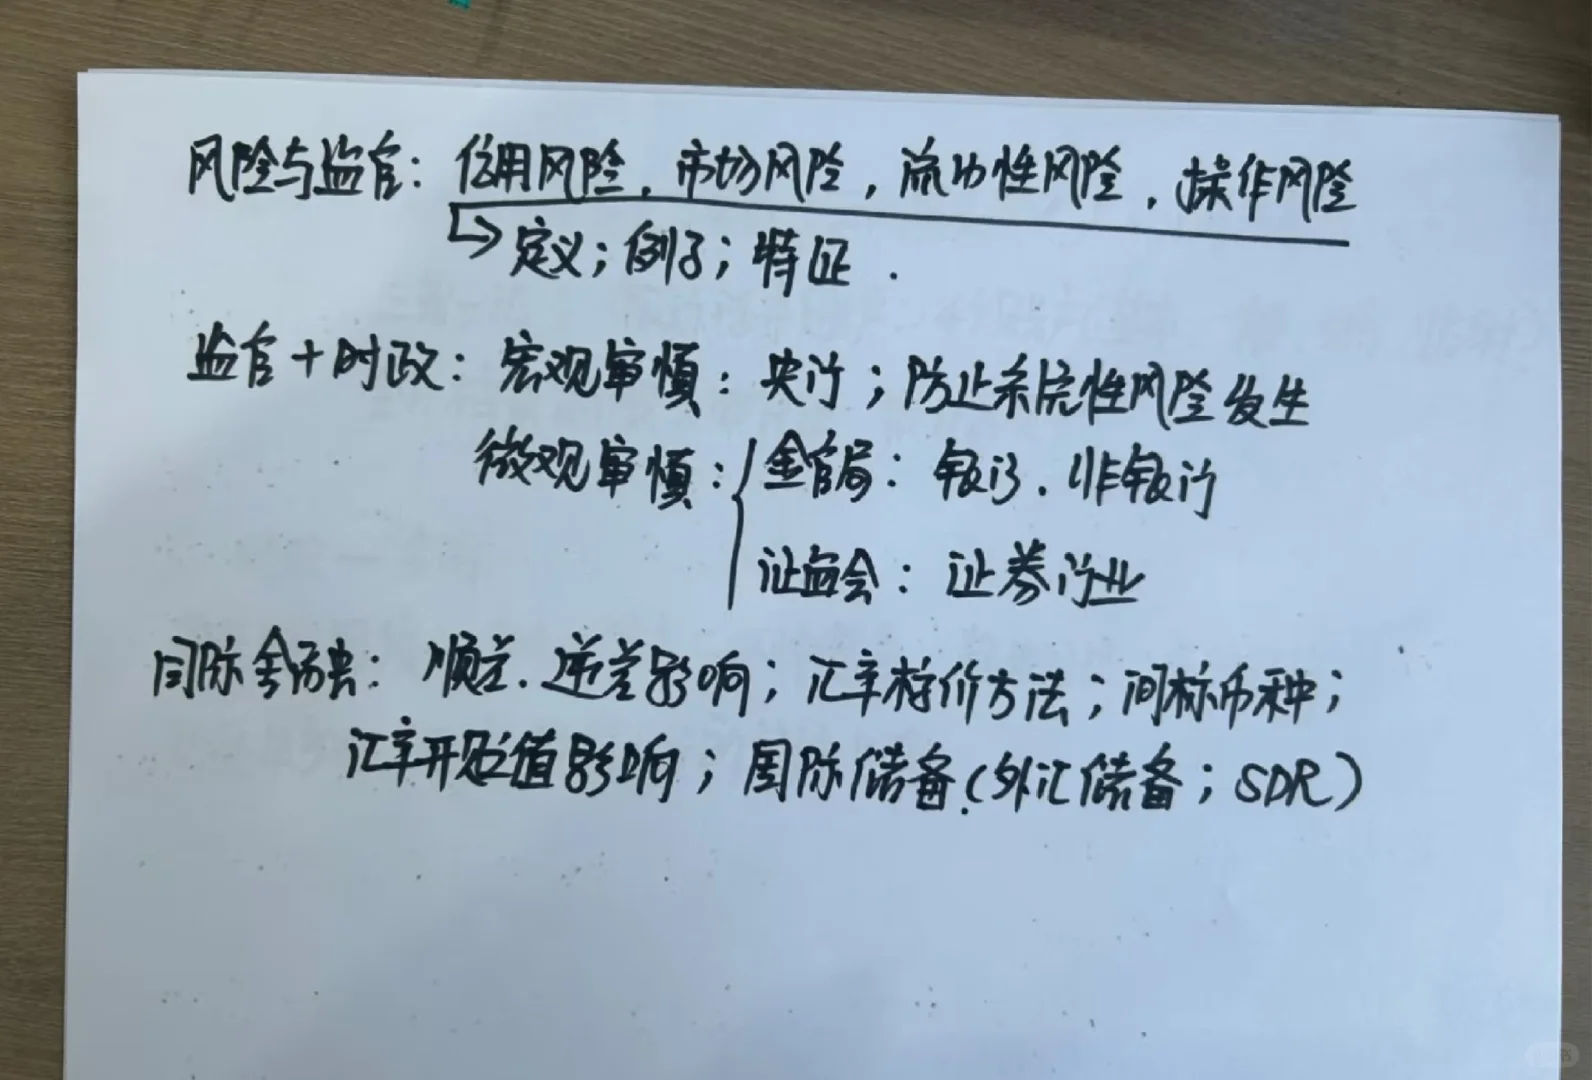 风险与监管：信用风险、市场风险，流动性风险、操作风险
定义；例子；特征．
监管＋时政：宏观审慎：央行；防止系统性风险发生
微观审慎：金管局：银行．非银行
证监会：证券行业
国际金融：顺差、逆差影响；汇率标价方法；间标币种；
汇率升贬值影响；国际储备（外汇储备；SDR）